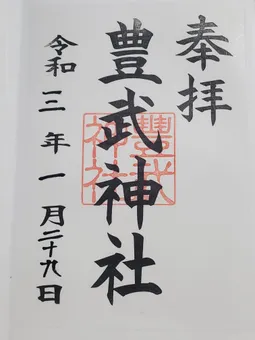 奉拝
豊武神社
豐武神社
令和三年一月二十九日